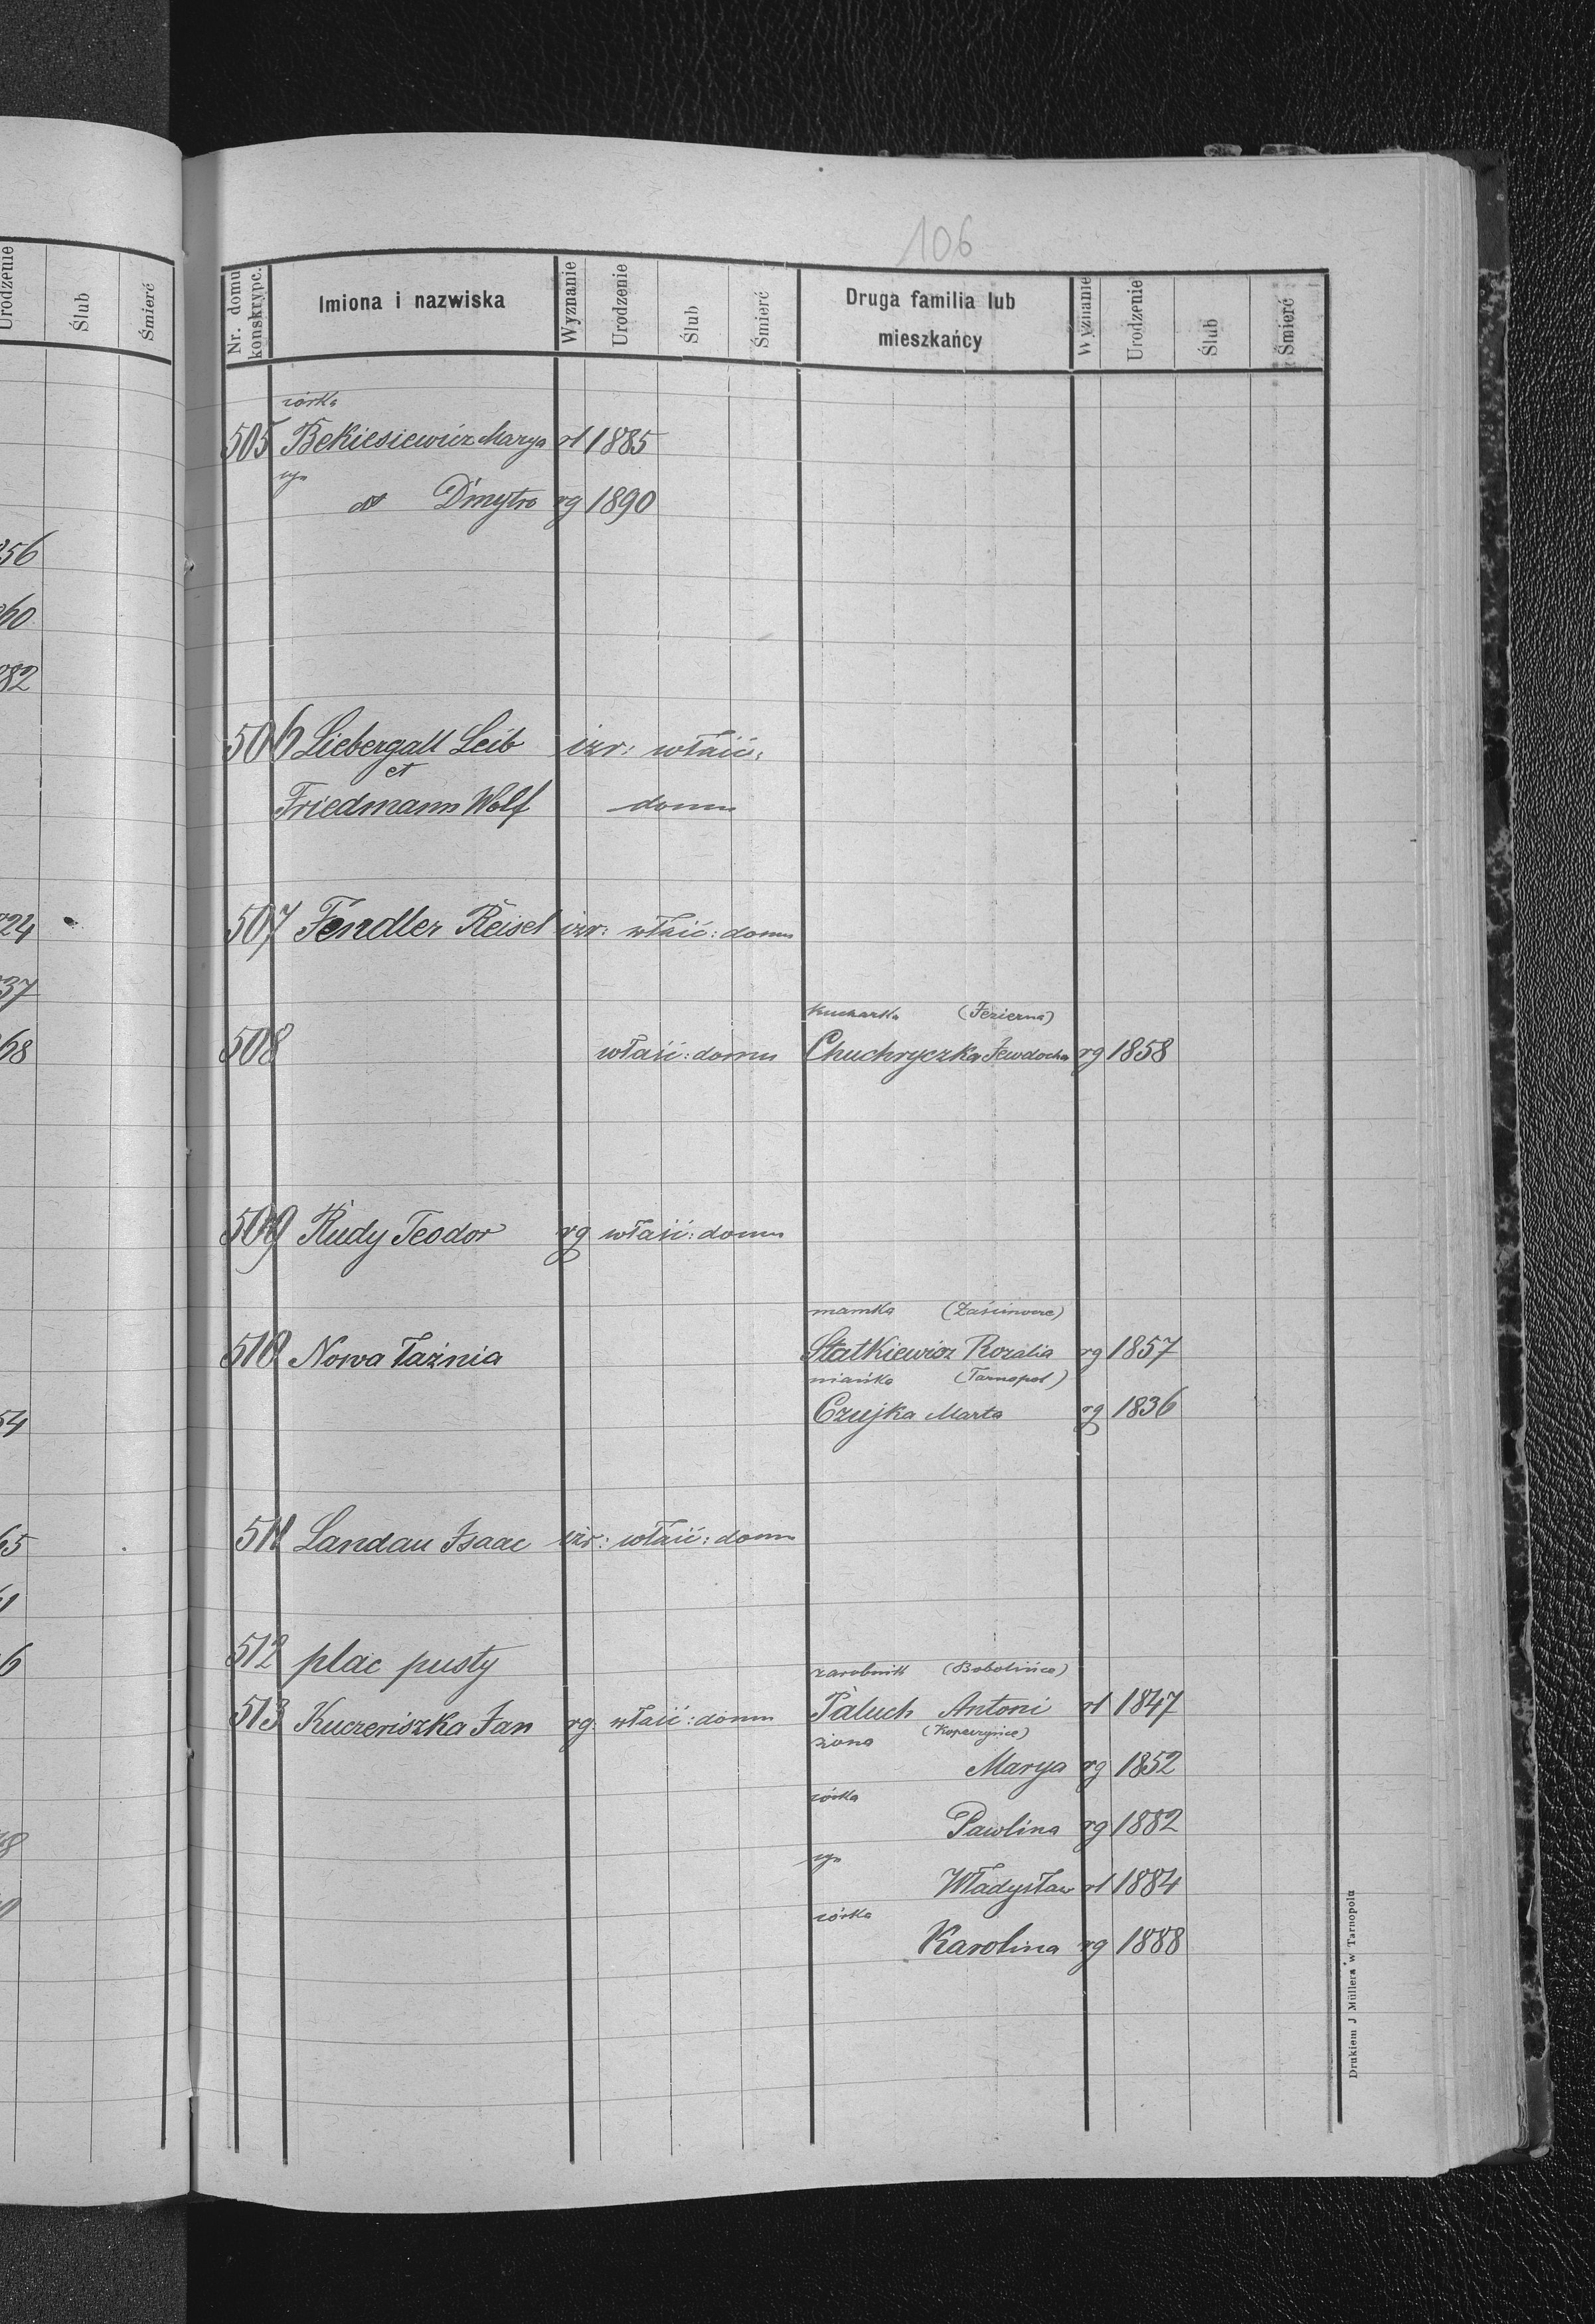 106
Urodzenie Ślub Śmierć
Nr. domu konskrypc. Imiona i nazwiska Wyznanie Urodzenie Ślub Śmierć Druga familia lub mieszkańcy Wyznanie Urodzenie Ślub Śmierć
córka
505 Bekiesiewicz Marya rł 1885
syn
dt Dmytro rg 1890
506 Liebergall Leib izr: właść:
et
Friedmann Wolf domu
507 Fendler Reisel izr: właść: domu
kucharka (Jezierna)
508 właść: domu Chuchryczka Jewdocha rg 1858
509 Rudy Teodor rg właść: domu
mamka
510 Nowa Łaźnia Statkiewicz Rozalia rg 1857
niańka (Tarnopol)
Czujka Marta rg 1836
511 Landau Isaac izr: właść: domu
512 plac pusty
zarobnik (Bobolińce)
513 Kuczeriszka Jan rg właść: domu Paluch Antoni rł 1847
żona (Kopeczyńce)
Marya rg 1852
córka
Pawlina rg 1882
syn
Władysław rł 1884
córka
Karolina rg 1888
Drukiem J Müllera w Tarnopolu